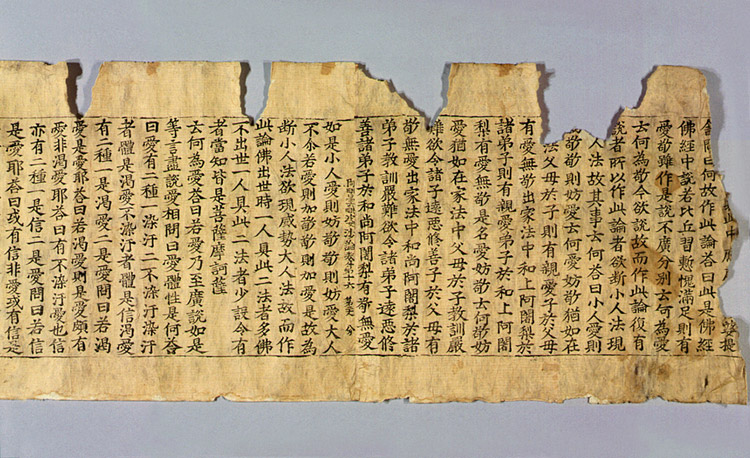 問曰何故作此論荅曰此是佛經
佛經中説若比丘習慙愧滿足則有
愛敬雖作是説不廣分別云何為愛
云何為敬今欲説故而作此論復有
説者所以作此論者欲斷小人法現
人法故其事云何荅曰小人愛則
敬敬則妨愛云何愛妨敬猶如在
法父母於子則有親愛子於父母
有愛無敬出家法中和上阿闍梨於
諸弟子則有親愛弟子於和上阿闍
梨有愛無敬是名愛妨敬云何敬妨
愛猶如在家法中父母於子教訓嚴
難欲令子遠惡修善子於父母有
敬無愛出家法中和尚阿闍梨於諸
弟子教訓嚴難欲令諸弟子遠惡修
善諸弟子於和尚阿闍梨有敬無愛
如是小人愛則妨敬敬則妨愛大人
不尒若愛則加敬敬則加愛是故為
斷小人法欲現威勢大人法故而作
此論佛出世時一人具此二法者多佛
不出世一人具此二法者少設令有
者當知皆是菩薩摩訶薩
云何為愛荅曰若愛乃至廣説如是
等言盡説愛相問曰愛體性是何荅
曰愛有二種一染汙二不染汙染汙
者體是渴愛不染汙者體是信渴愛
有二種一是渴愛二是愛問曰若渴
愛是愛耶荅曰若渴愛則是愛頗有
愛非渴愛耶荅曰有不染汙愛也信
亦有二種一是信二是愛問曰若信
是愛耶荅曰或有信非愛或有信是